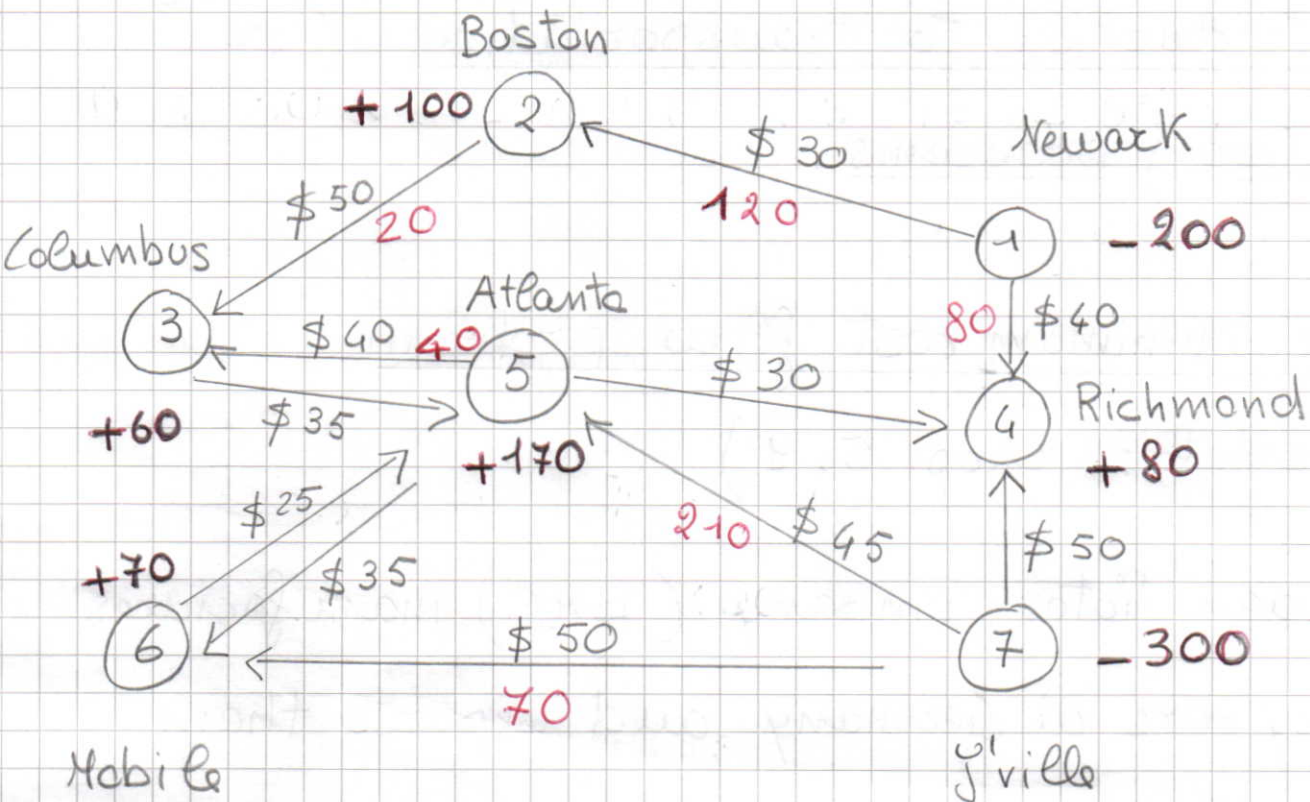 Boston
+100
2
$ 30
Newark
120
1
-200
$ 50
20
Columbus
3
Atlanta
$ 40
40
5
80
$ 40
$ 30
4
Richmond
+80
+60
$ 35
+170
$ 25
210
$ 45
$ 50
+70
$ 35
6
$ 50
7
-300
70
Mobile
J'ville